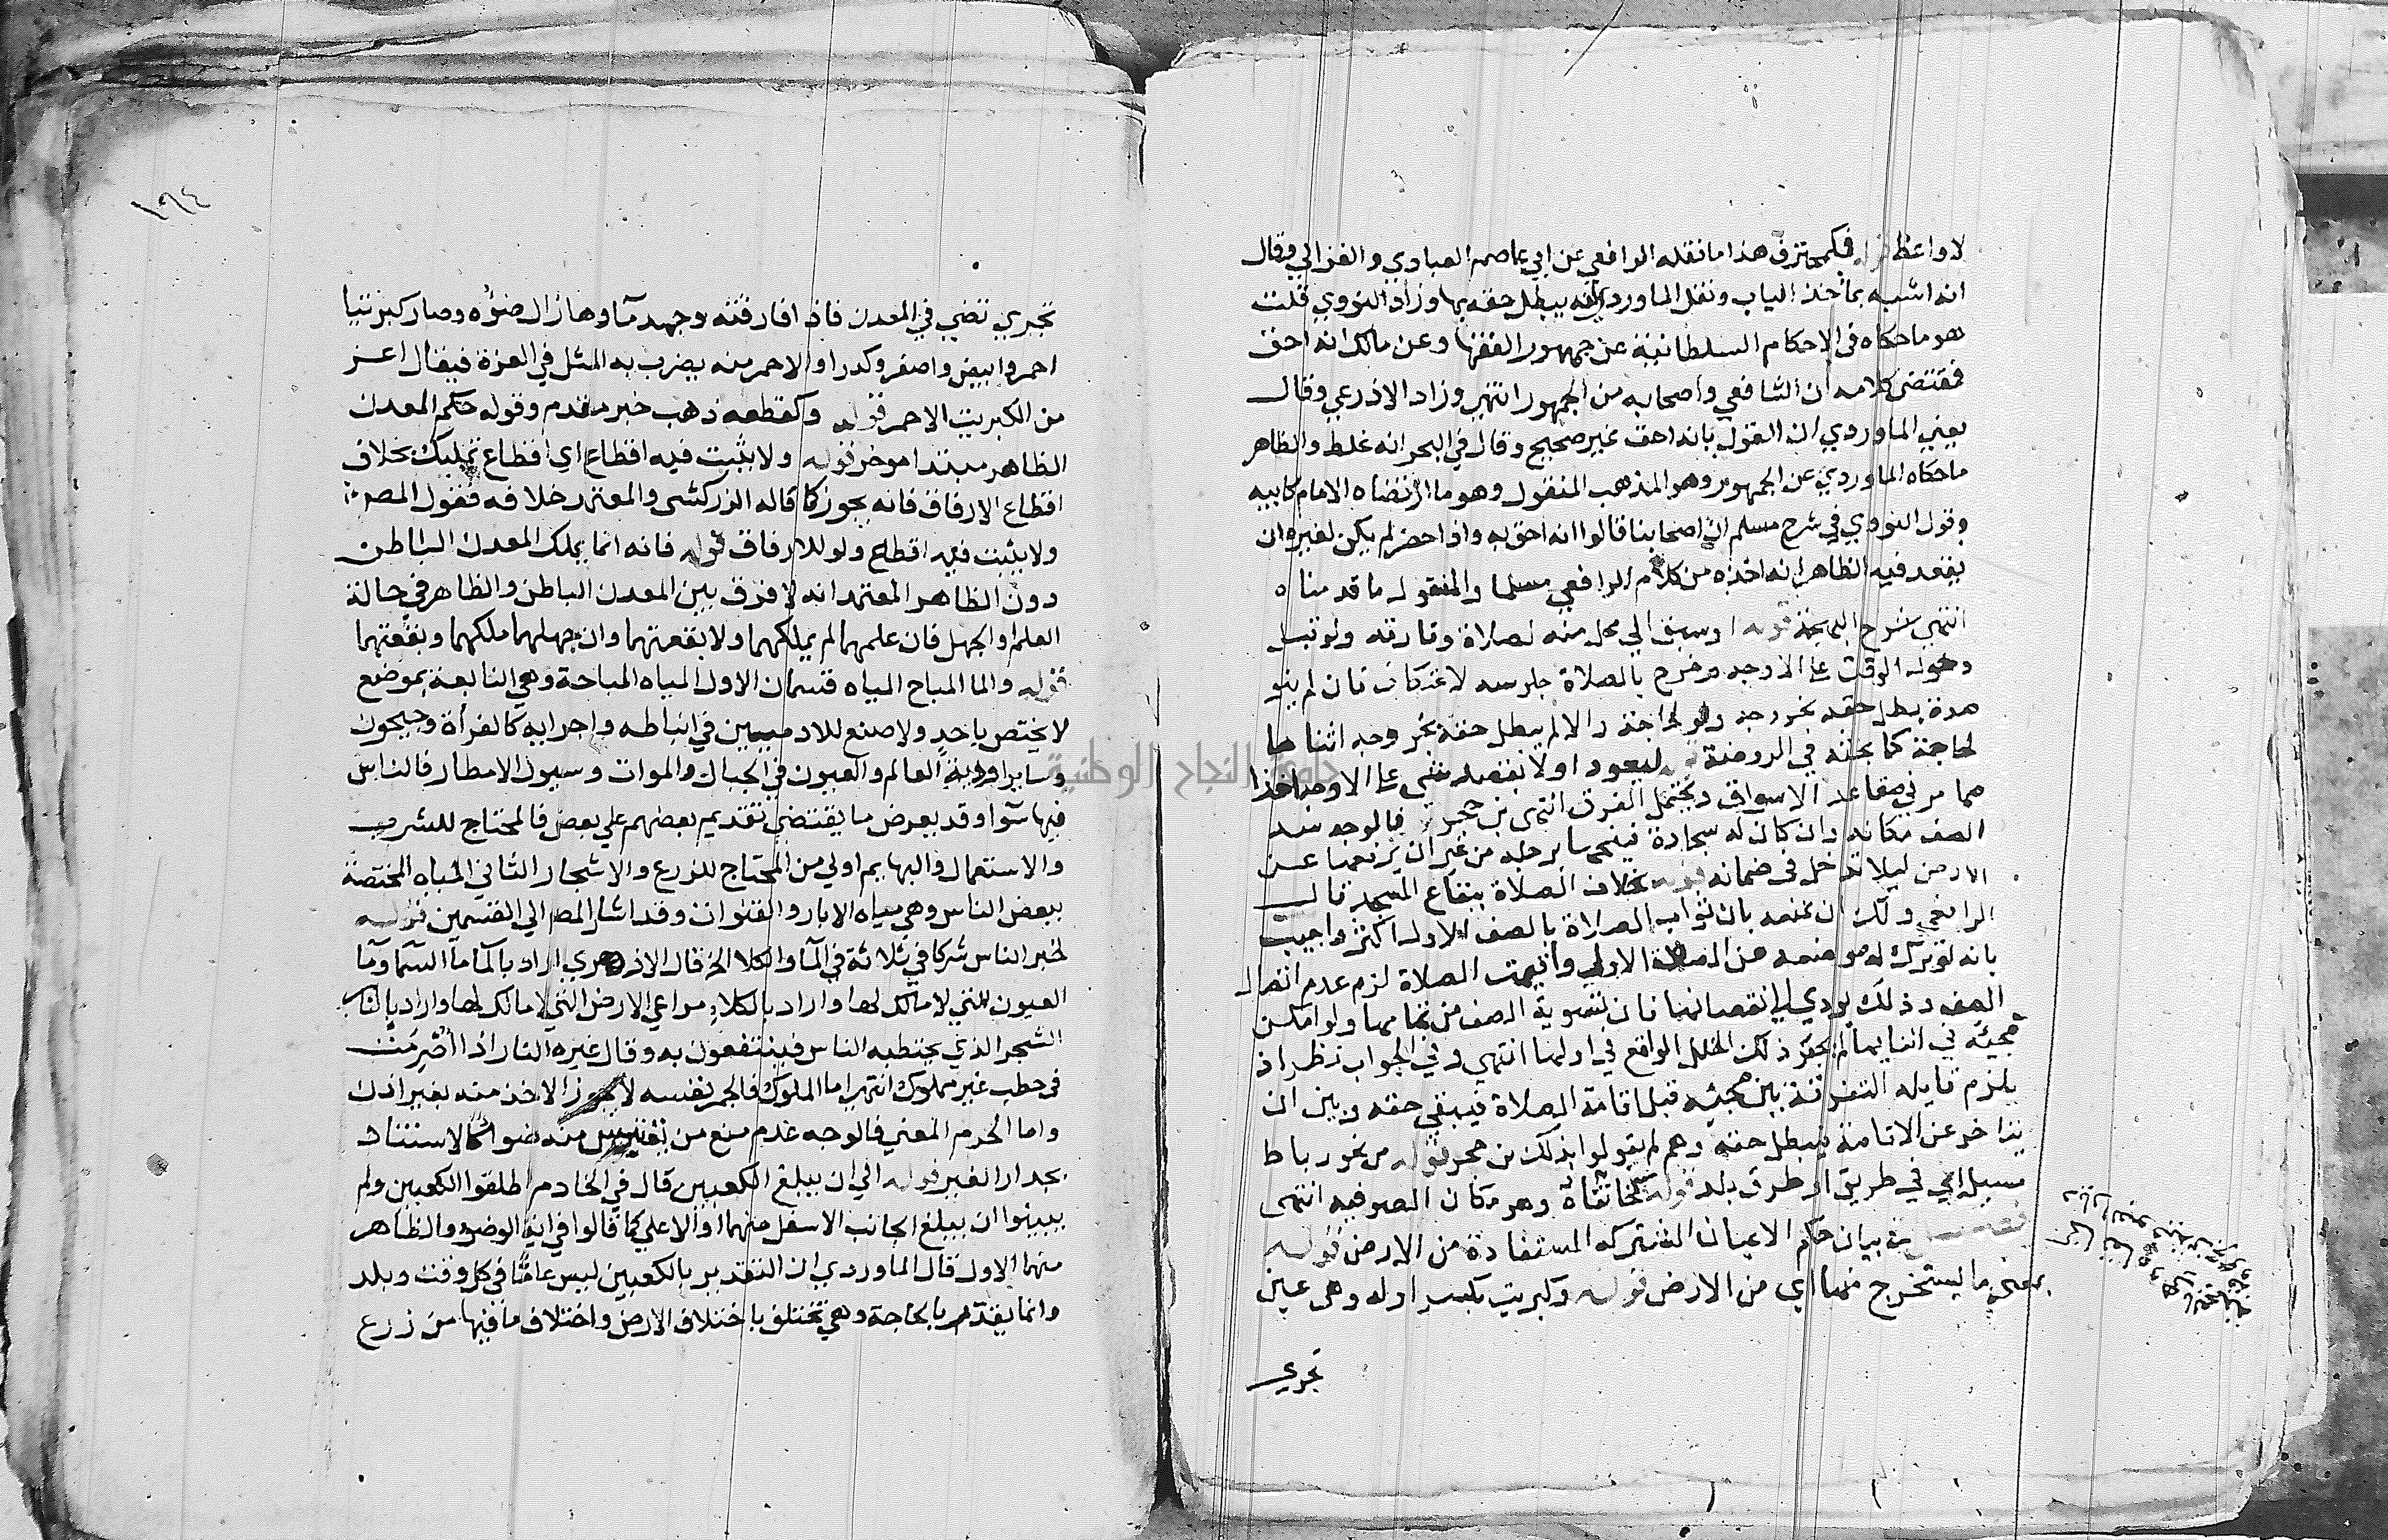 لا واعظا قوله فكمحترف هذا ما نقله الرافعي عن ابي عاصم العبادي والغزالي وقال
انه اشبه بماخذ الباب ونقل الماوردي انه يبطل حقه بها وزاد النووي قلت
هو ما حكاه في الاحكام السلطانية عن جمهور الفقها وعن مالك انه احق
فمقتضى كلامه ان الشافعي واصحابه من الجمهور انتهى وزاد الاذرعي وقال
يعني الماوردي ان القول بانه احق غير صحيح وقال في البحر انه غلط والظاهر
ما حكاه الماوردي عن الجمهور وهو المذهب المنقول وهو ما ارتضاه الامام كابيه
وقول النووي في شرح مسلم ان اصحابنا قالوا انه احق به واذا حضر لم يكن لغيره ان
يقعد فيه الظاهر انه اخذه من كلام الرافعي مسلما والمنقول ما قدمناه
انتهى شرح البهجة قوله او سبق الي محل منه لصلاة وفارقه ولو قبل
دخول الوقت على الاوجه وخرج بالصلاة جلوسه لاعتكاف فان لم ينو
مدة بطل حقه بخروجه ولو لحاجة والا لم يبطل حقه بخروجه اثناها
لحاجة كما بحثه في الروضة قوله ليعود او لا بقصد شي على الاوجه اخذا
مما مر في مقاعد الاسواق ويحتمل الفرق انتهى بن حجر فالوجه سد
الصف مكانه وان كان له سجادة فينحيها برجله من غير ان يرفعها عن
الارض ليلا تدخل في ضمانه قوله بخلاف الصلاة ببقاع المسجد قال
الرافعي ولك ان تمنعه بان ثواب الصلاة بالصف الاول اكثر واجيب
بانه لو ترك له موضعه من الصف الاول واقيمت الصلاة لزم عدم اتصال
الصف وذلك يودي الى نقصانها فان تسوية الصف من تمامها ولو امكن
مجيئه في اثنايها لم يجبر ذلك الخلل الواقع في اولها انتهى وفي الجواب نظر اذ
يلزم قايله التفرقة بين مجيئه قبل اقامة الصلاة فيبقى حقه وبين ان
يتاخر عن الاقامة فيبطل حقه وهم لم يقولوا بذلك بن حجر قوله من نحو رباط
مسبل اي في طريق او طرف بلد قوله كخانقاه وهو مكان الصوفيه انتهى
فصل في بيان حكم الاعيان المشتركه المستفادة من الارض قوله
بمعنى ما يستخرج منها اي من الارض قوله وكبريت بكسر اوله وهو عين
تجري
١٩٤
تجري تضي في المعدن فاذا فارقته وجمد ماوها زال ضوه وصار كبريتا
احمر وابيض واصفر وكدرا والاحمر منه يضرب به المثل في العزة فيقال اعز
من الكبريت الاحمر قوله وكقطعه ذهب خبر مقدم وقوله حكم المعدن
الظاهر مبتدا موخر قوله ولا يثبت فيه اقطاع اي اقطاع تمليك بخلاف
اقطاع الارفاق فانه يجوز كما قاله الزركشي والمعتمد خلافه فقول المصـ
ولا يثبت فيه اقطاع ولو للارفاق قوله فانه انما يملك المعدن الباطن
دون الظاهر المعتمد انه لا فرق بين المعدن الباطن والظاهر في حالة
العلم او الجهل فان علمهما لم يملكهما ولا بقعتهما وان جهلهما ملكهما وبقعتهما
قوله والما المباح المياه قسمان الاول المياه المباحة وهي النابعة بموضع
لا يختص باحد ولا صنع للادميين في انباطه واجرايه كالفراة وجيحون
وساير اودية العالم والعيون في الجبال والموات وسيول الامطار فالناس
فيها سوآ وقد يعرض ما يقتضي تقديم بعضهم علي بعض فالمحتاج للشرب
والاستعمال والبهايم اولي من المحتاج للزرع والاشجار الثاني المياه المختصة
ببعض الناس وهي مياه الابار والقنوات وقد اشار المصـ الي القسمين قوله
لخبر الناس شركا في ثلاثة في المآ والكلا الخ قال الازهري اراد بالمآ مآ السمآ ومآ
العيون التي لا مالك لها واراد بالكلاء مراعي الارض التي لا مالك لها واراد بالنار
الشجر الذي يحتطبه الناس فينتفعون به وقال غيره النار اذا اضرمت
في حطب غير مملوك انتهى اما المملوك فالجمر نفسه لا يجوز الاخذ منه بغير اذن
واما الجرم المضي فالوجه عدم منع من يقتبس منه ضوا كالاستناد
بجدار الغير قوله الي ان يبلغ الكعبين قال في الخادم اطلقوا الكعبين ولم
يبينوا ان يبلغ الجانب الاسفل منهما او الاعلي كما قالوا في اية الوضوء والظاهر
منهما الاول قال الماوردي ان التقدير بالكعبين ليس عاما في كل وقت وبلد
وانما يقدر بالحاجة وهي تختلف باختلاف الارض واختلاف ما فيها من زرع